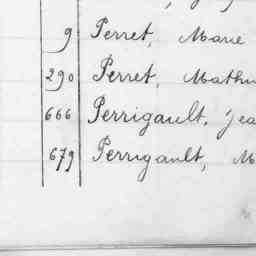 9 Perret, Marie
290 Perret, Mathu
666 Perrigault, Jea
679 Perrigault, M